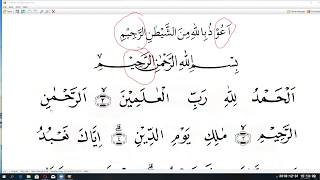 اَعُوْذُ بِاللهِ مِنَ الشَّيْطٰنِ الرَّجِيْمِ
بِسْمِ اللهِ الرَّحْمٰنِ الرَّحِيْمِ
اَلْحَمْدُ لِلّٰهِ رَبِّ الْعٰلَمِيْنَ ۝ الرَّحْمٰنِ
الرَّحِيْمِ ۝ مٰلِكِ يَوْمِ الدِّيْنِ ۝ اِيَّاكَ نَعْبُدُ